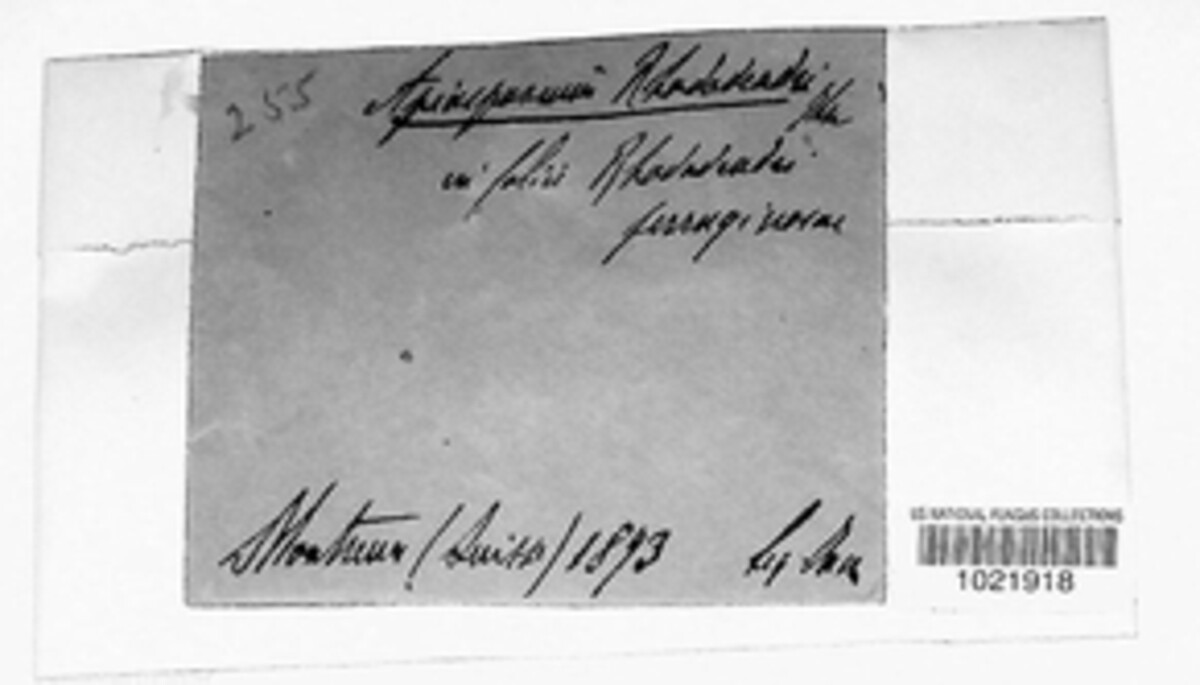 255
Apiosporium Rhododendri
in foliis Rhododendri
ferrugineae
Montreux (Suisse) 1893
Leg
US NATIONAL FUNGUS COLLECTIONS
1021918